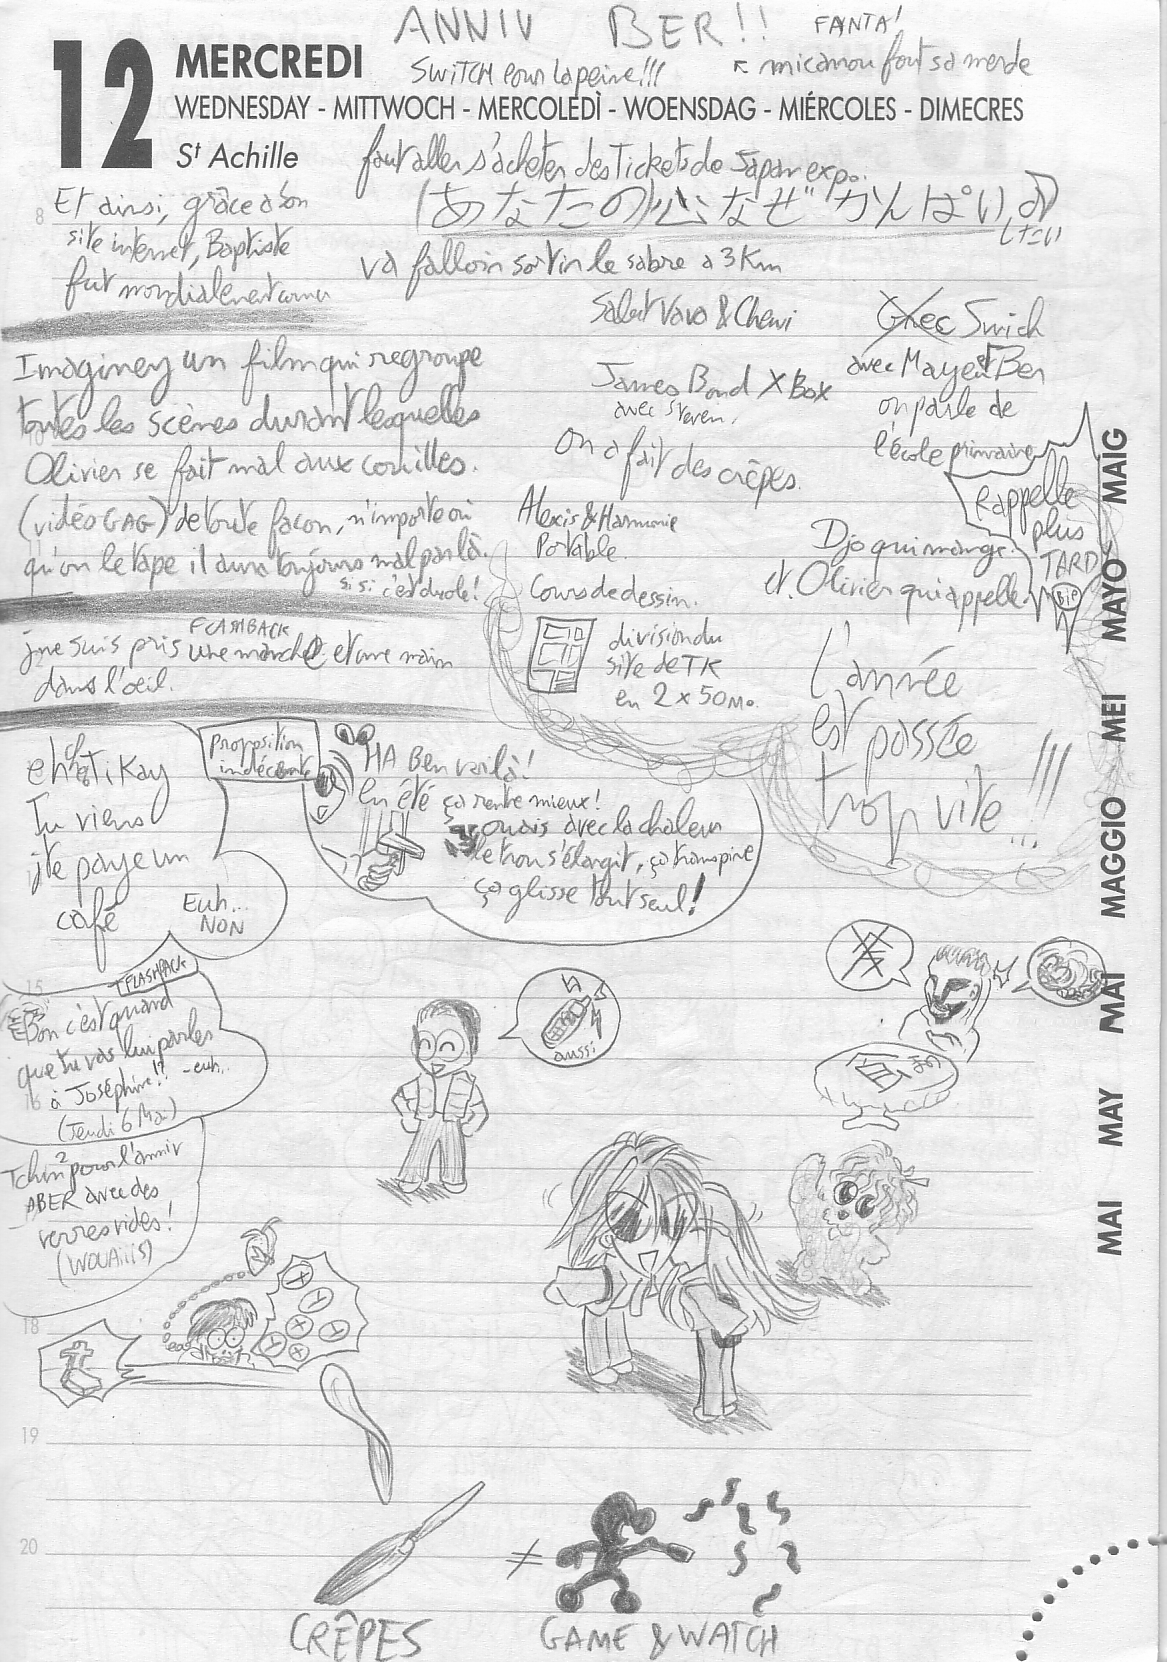 ANNIV BER!!
FANTA!
SWITCH pour la peine!!!
micanou fout sa merde
12 MERCREDI
WEDNESDAY - MITTWOCH - MERCOLEDÌ - WOENSDAG - MIÉRCOLES - DIMECRES
St Achille
faut aller s'acheter des Tickets de Japan expo.
(あなたの)心 なぜ かんぱい
したい
va falloir sortir le sabre à 3 Km
8
Et ainsi, grâce à son
site internet, Baptiste
fut mondialement connu
Salut Vava & Chewi
Grec Swich
avec Mayer et Ben
on parle de
l'école primaire
James Bond XBox
avec Steven.
On a fait des crêpes.
Imaginez un film qui regroupe
toutes les scènes durant lesquelles
Olivier se fait mal aux couilles.
(vidéo GAG) de toute façon, n'importe où
qu'on le tape il aura toujours mal par là.
si si c'est drole!
Alexis & Harmonie
Portable.
Cours de dessin.
Djo qui mange.
et Olivier qui appelle
Rappelle
plus
TARD
Bip
FLASHBACK
j'me suis pris une marche et une main
dans l'oeil.
division du
site de TK
en 2 x 50 Mo.
L'année
est passée
trop vite...!!!
eh petit Kay
Tu viens
j'te paye un
café
Proposition
indécente
Euh...
NON
HA Ben voilà!
En été ça rentre mieux!
ouais avec la chaleur
le trou s'élargit, ça transpire
ça glisse tout seul!
FLASHBACK
15
Bon c'est quand
que tu vas lui parler
à Joséphine!? -euh..
16
(Jeudi 6 Mai)
aussi
Tchin² pour l'anniv
A BER avec des
verres vides!
(WOUAiiiS)
18
19
20
≠
CRÊPES
GAME & WATCH
MAI MAY MAI MAGGIO MEI MAYO MAIG